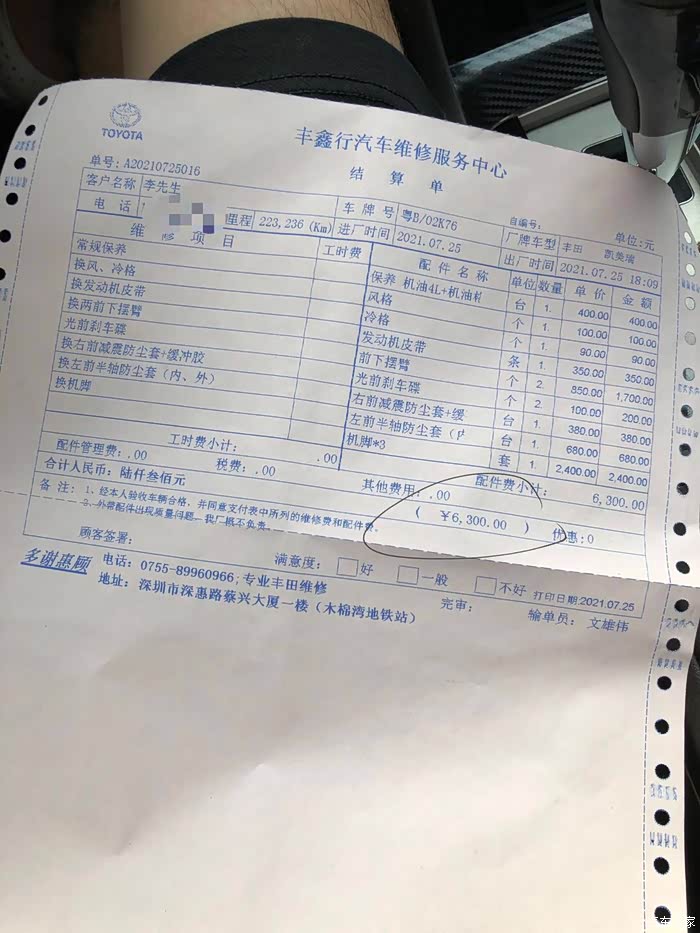 TOYOTA
丰鑫行汽车维修服务中心
结 算 单
单号: A20210725016
自编号:
单位:元
客户名称 李先生 车牌号 粤B/02K76 厂牌车型 丰田 凯美瑞
电 话 里程 223,236 (Km) 进厂时间 2021.07.25 出厂时间 2021.07.25 18:09
维 修 项 目 工时费 配 件 名 称 单位 数量 单 价 金 额
常规保养 保养 机油4L+机油 台 1. 400.00 400.00
换风、冷格 风格 个 1. 100.00 100.00
换发动机皮带 冷格 个 1. 90.00 90.00
换两前下摆臂 发动机皮带 条 1. 350.00 350.00
光前刹车碟 前下摆臂 个 2. 850.00 1,700.00
换右前减震防尘套+缓冲胶 光前刹车碟 个 2. 100.00 200.00
换左前半轴防尘套（内、外） 右前减震防尘套+缓 台 1. 380.00 380.00
换机脚 左前半轴防尘套（ 台 1. 680.00 680.00
机脚*3 套 1. 2,400.00 2,400.00
工时费小计: .00 配件费小计: 6,300.00
配件管理费: .00 税费: .00 其他费用: .00
合计人民币: 陆仟叁佰元 ( ￥6,300.00 ) 优惠:0
备 注: 1、经本人验收车辆合格，并同意支付表中所列的维修费和配件费。
2、外带配件出现质量问题，我厂概不负责。
顾客签署: 满意度: 好 一般 不好 打印日期:2021.07.25
多谢惠顾 电话: 0755-89960966; 专业丰田维修 完审: 输单员: 文雄伟
地址: 深圳市深惠路蔡兴大厦一楼（木棉湾地铁站）